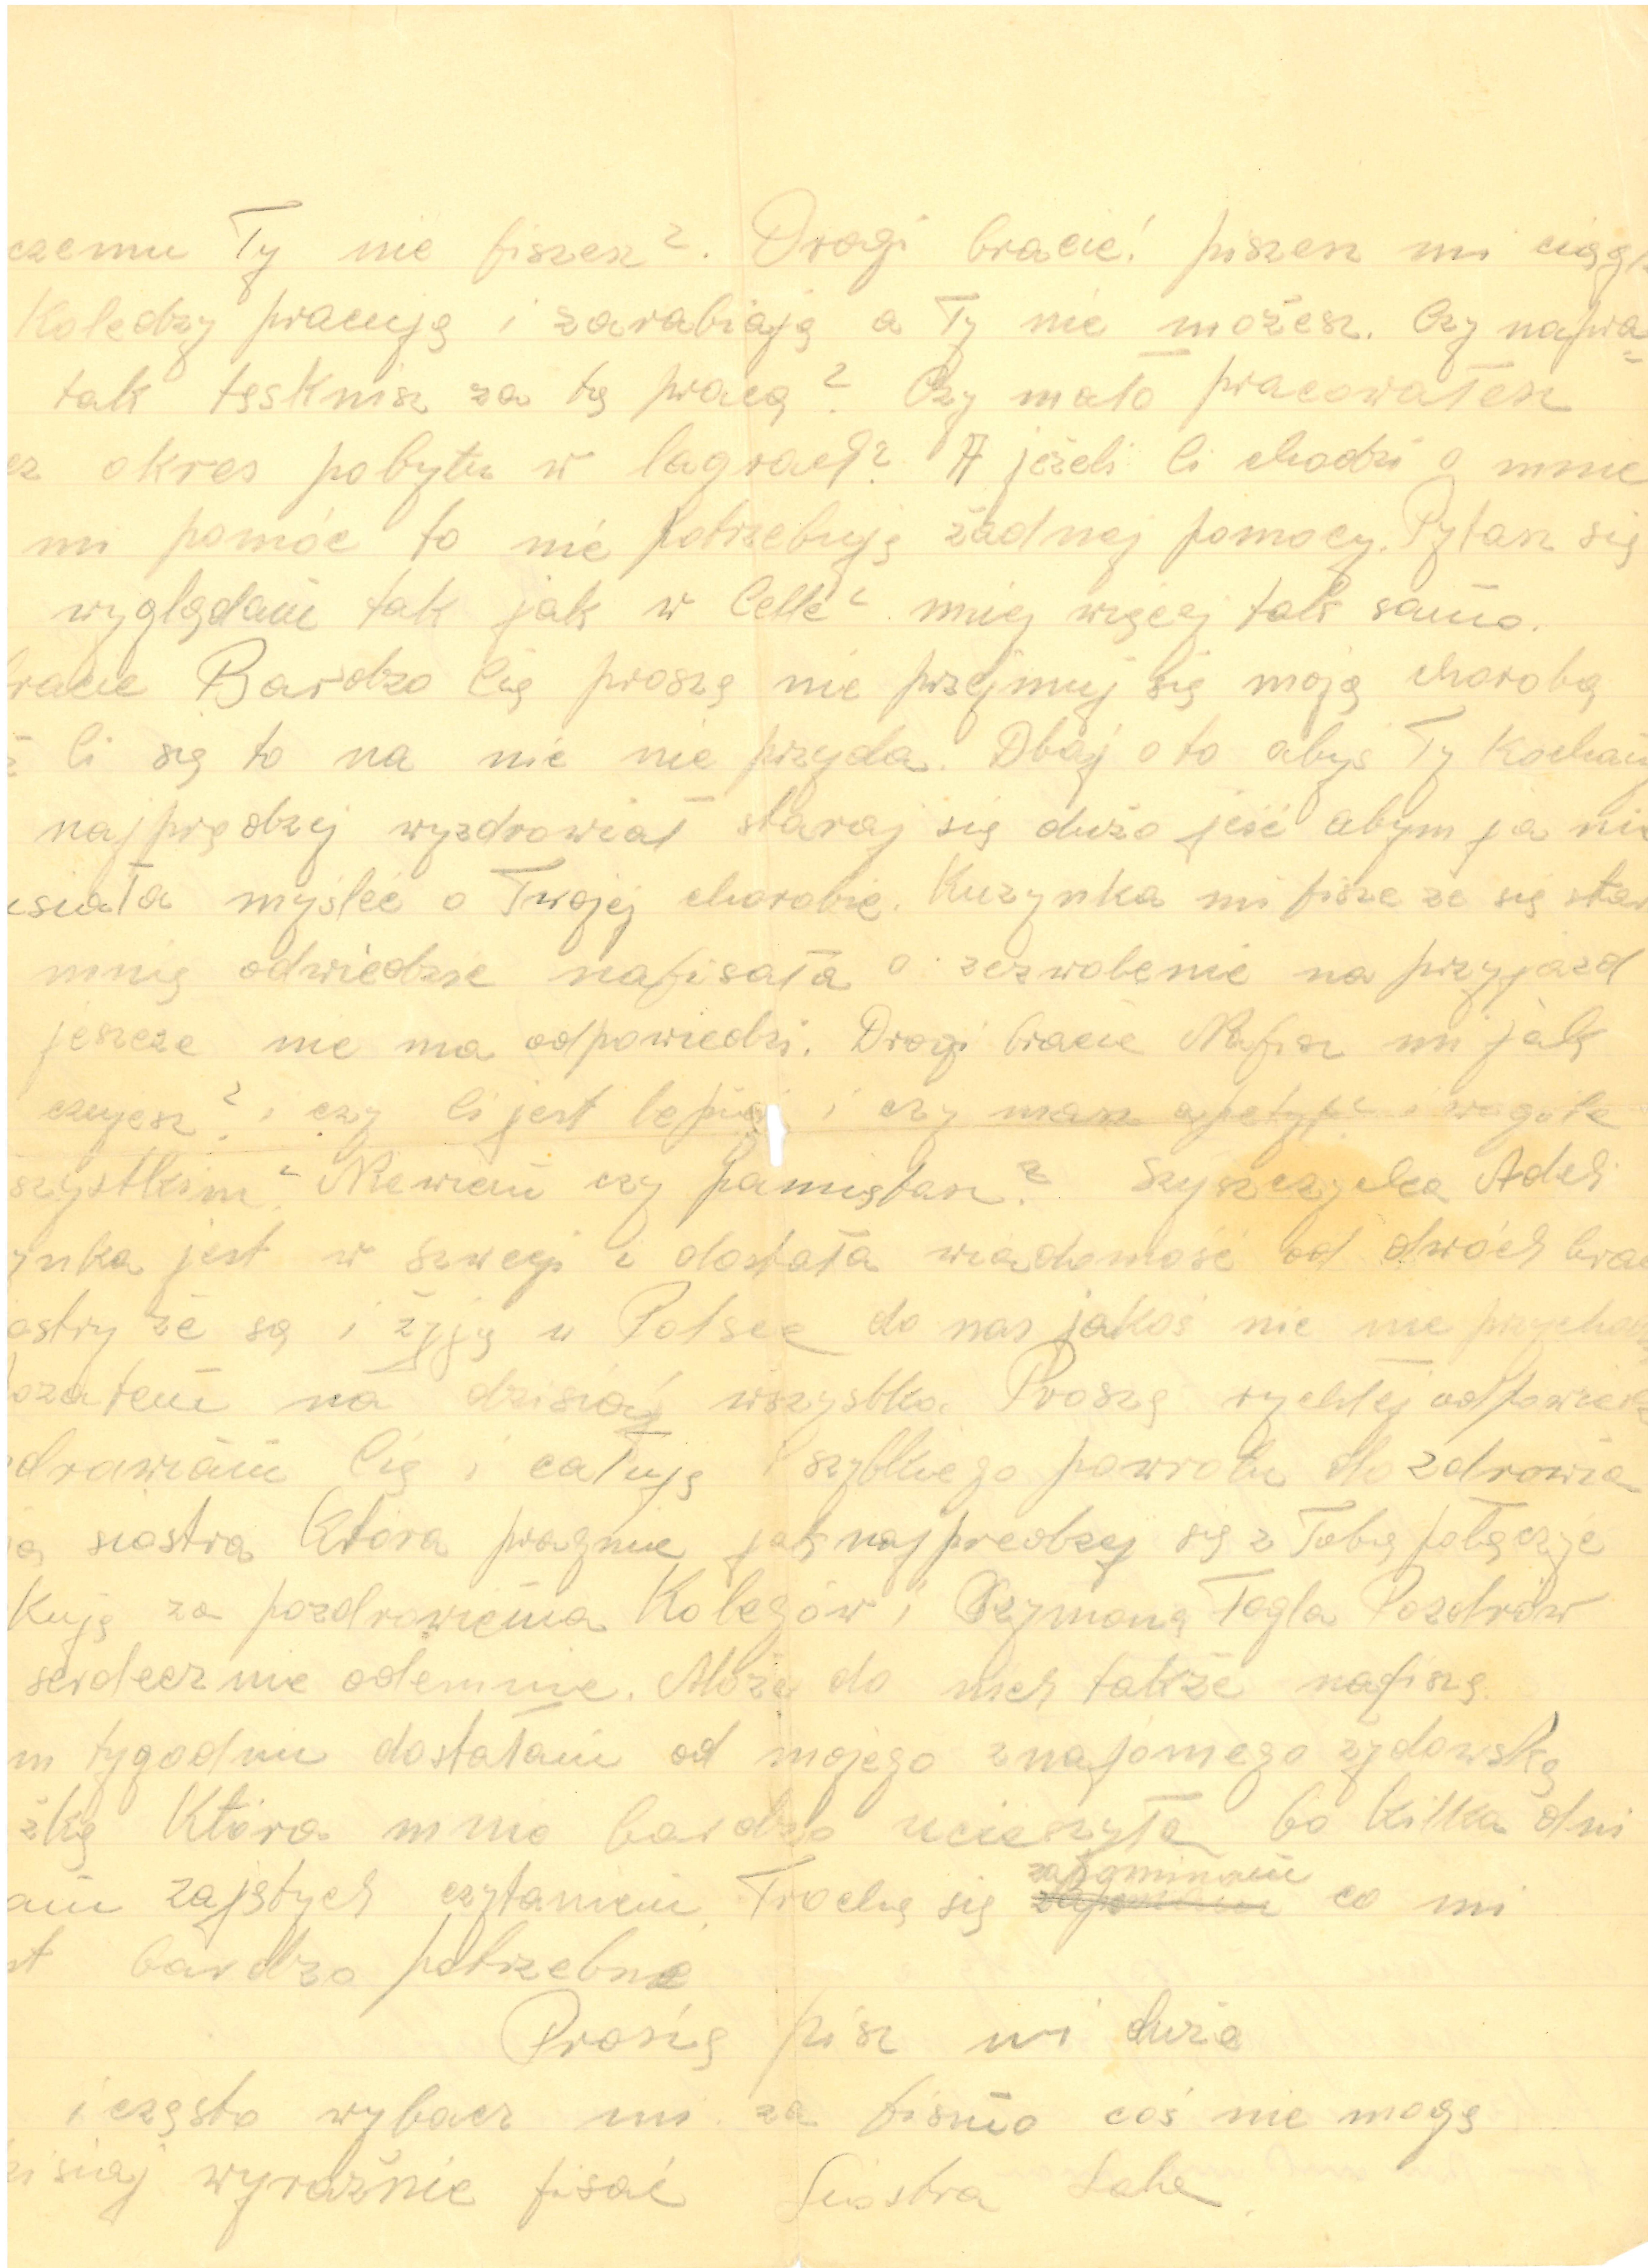 czemu Ty nie piszesz?. Drogi bracie! piszesz mi ciągl
Koledzy pracują i zarabiają a Ty nie możesz. Czy napra=
tak tęsknisz za tą pracą? Czy mało pracowałesz
ez okres pobytu w lagrach? A jeżeli Ci chodzi o mnie
mi pomóc to nie potrzebuję żadnej pomocy. Pytasz się
wyglądam tak jak w Celle? mniej więcej tak samo.
racie Bardzo Cię proszę nie przejmuj się moją chorobą
ż Ci się to na nic nie przyda. Dbaj o to abyś Ty Kochany
najprędzej wyzdrowiał staraj się dużo jeść abym ja nie
usiała myśleć o Twojej chorobie. Kuzynka mi pisze że się star
mnię odwiedzic napisała o zezwolenie na przyjazd
jeszcze nie ma odpowiedzi. Drogi bracie Napisz mi jak
czujesz? i czy Ci jest lepiej i czy masz apetyt? i wogóle
szystkim? Niewiem czy pamiętasz? Adeli
ynka jest w szwecji i dostała wiadomość od dwóch brac
ostry że są i żyją w Polsce do nas jakoś nic nie przychodz
ozatem na dzisiaj wszystko. Proszę rychłej odpowiedz
zdrawiam Cię i całuję i szybkiego powrotu do zdrowia
ja siostra Która pragnie jak najpredzej się z Tobą połączyć
Kuję za pozdrowienia Kolegów i Szymona Fogla Pozdrów
serdecznie odemnie. Może do nich także napiszę.
m tygodniu dostałam od mojego znajomego żydowską
żkę Która mnie bardzo ucieszyła bo Kilka dni
am zajętych czytaniem. Trochę się zapominam co mi
st bardzo potrzebne
Proszę pisz mi dużo
i często wybacz mi za pismo coś nie mogę
zisiaj wyraźnie pisać Siostra Lola